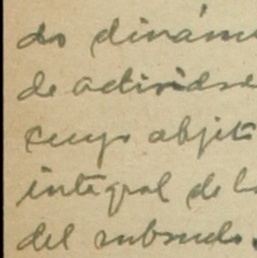 do dinám
de activida
cuyo objet
integral de l
del subsuelo.